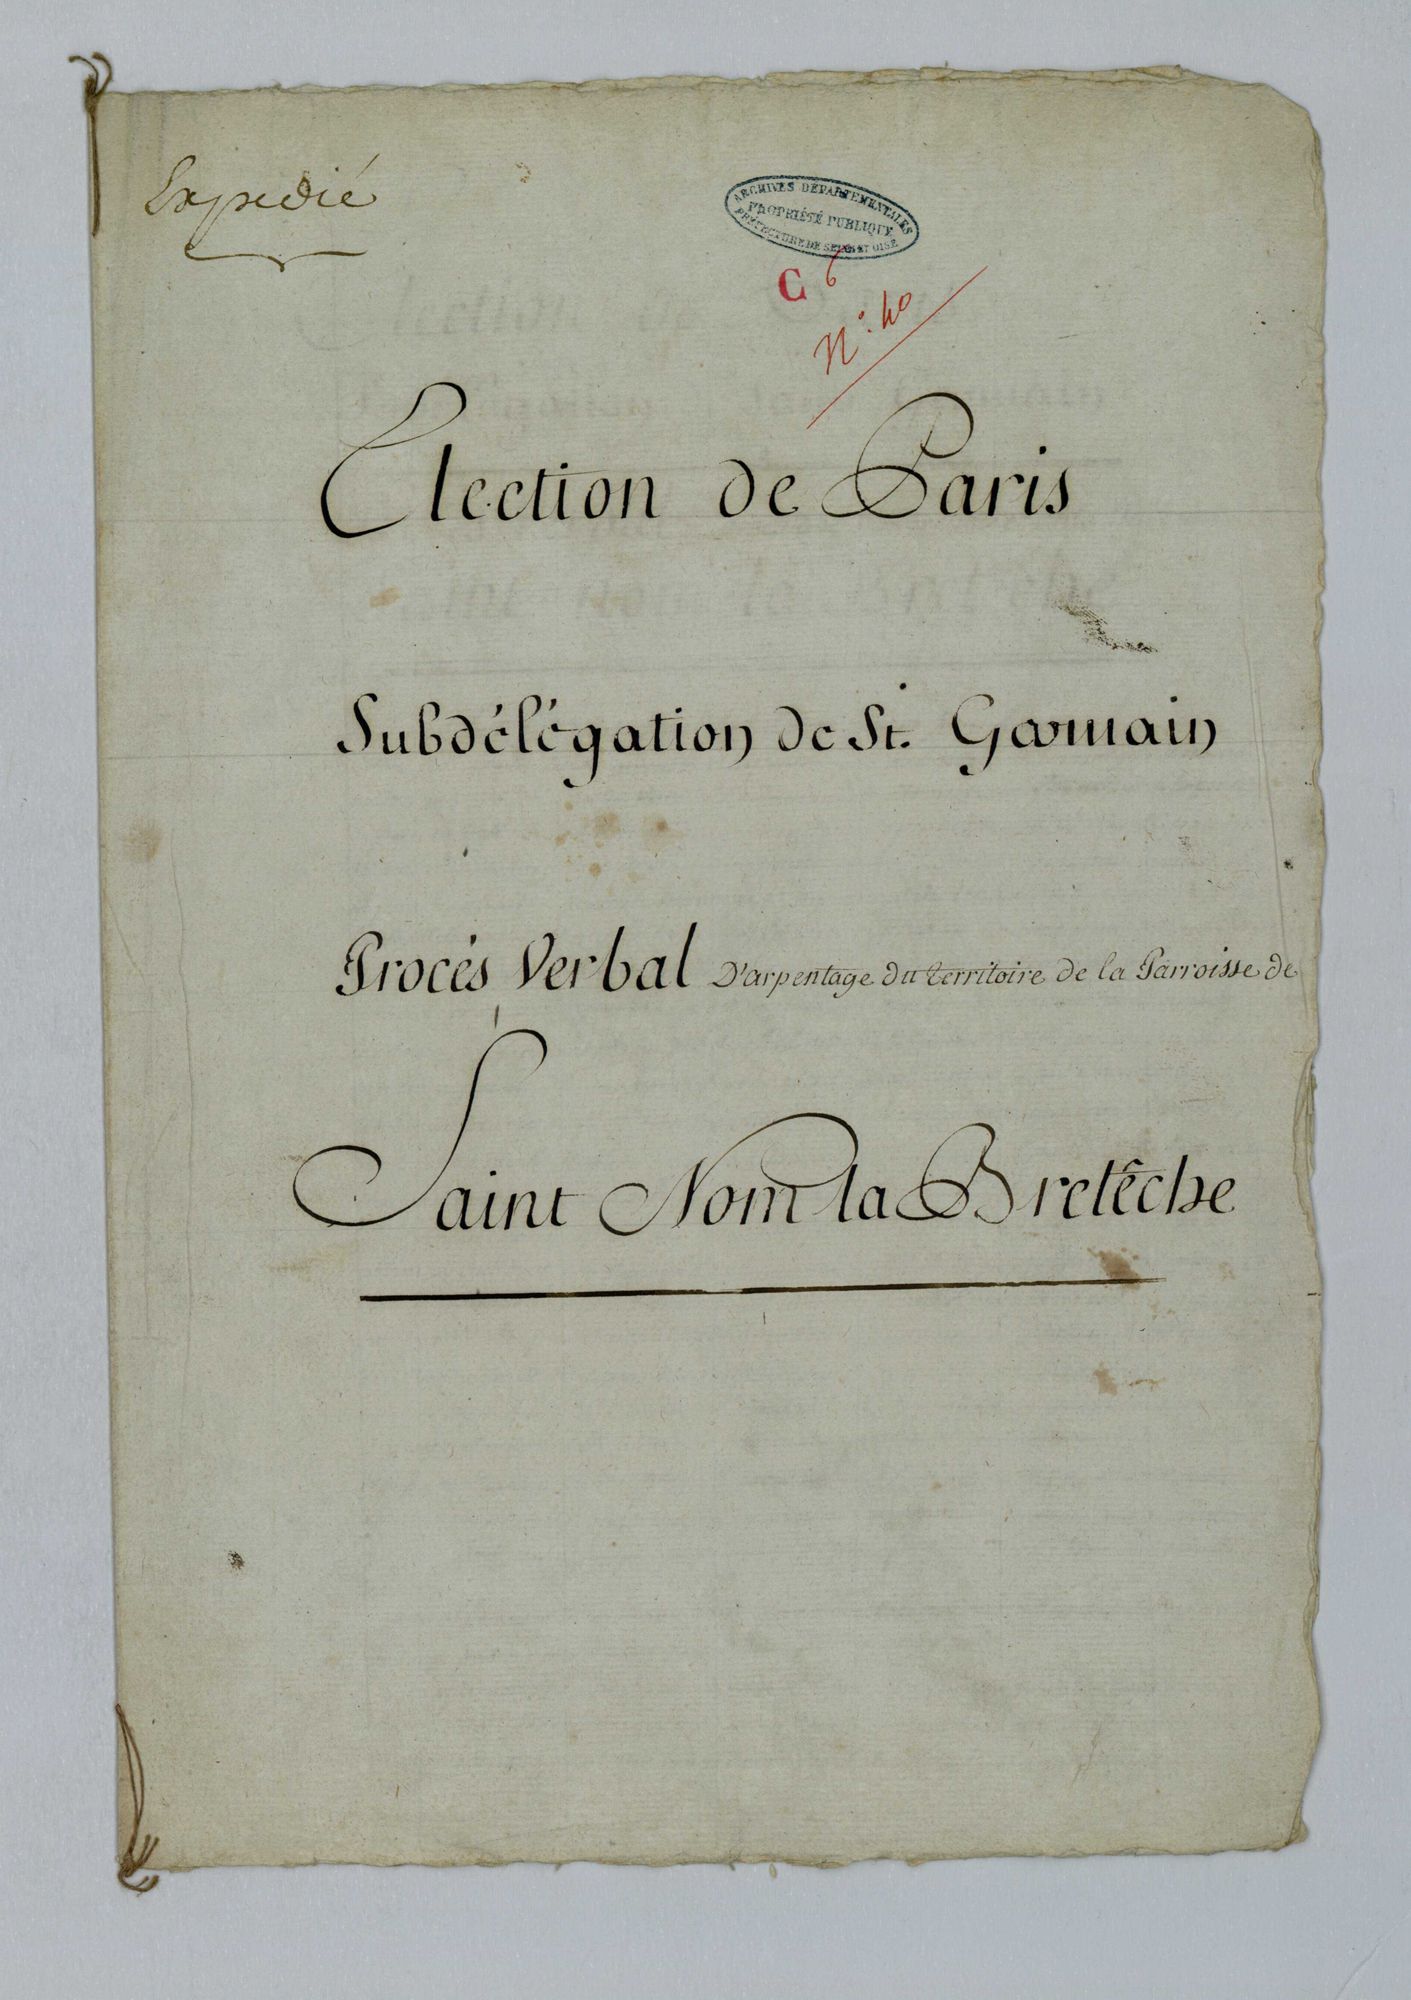 Expedié
ARCHIVES DÉPARTEMENTALES
PROPRIÉTÉ PUBLIQUE
PRÉFECTURE DE SEINE ET OISE
C 6
N.º 40
Election de Paris
Subdélégation de St. Germain
Procés Verbal D'arpentage du territoire de la Parroisse de
Saint Nom la Bretêche